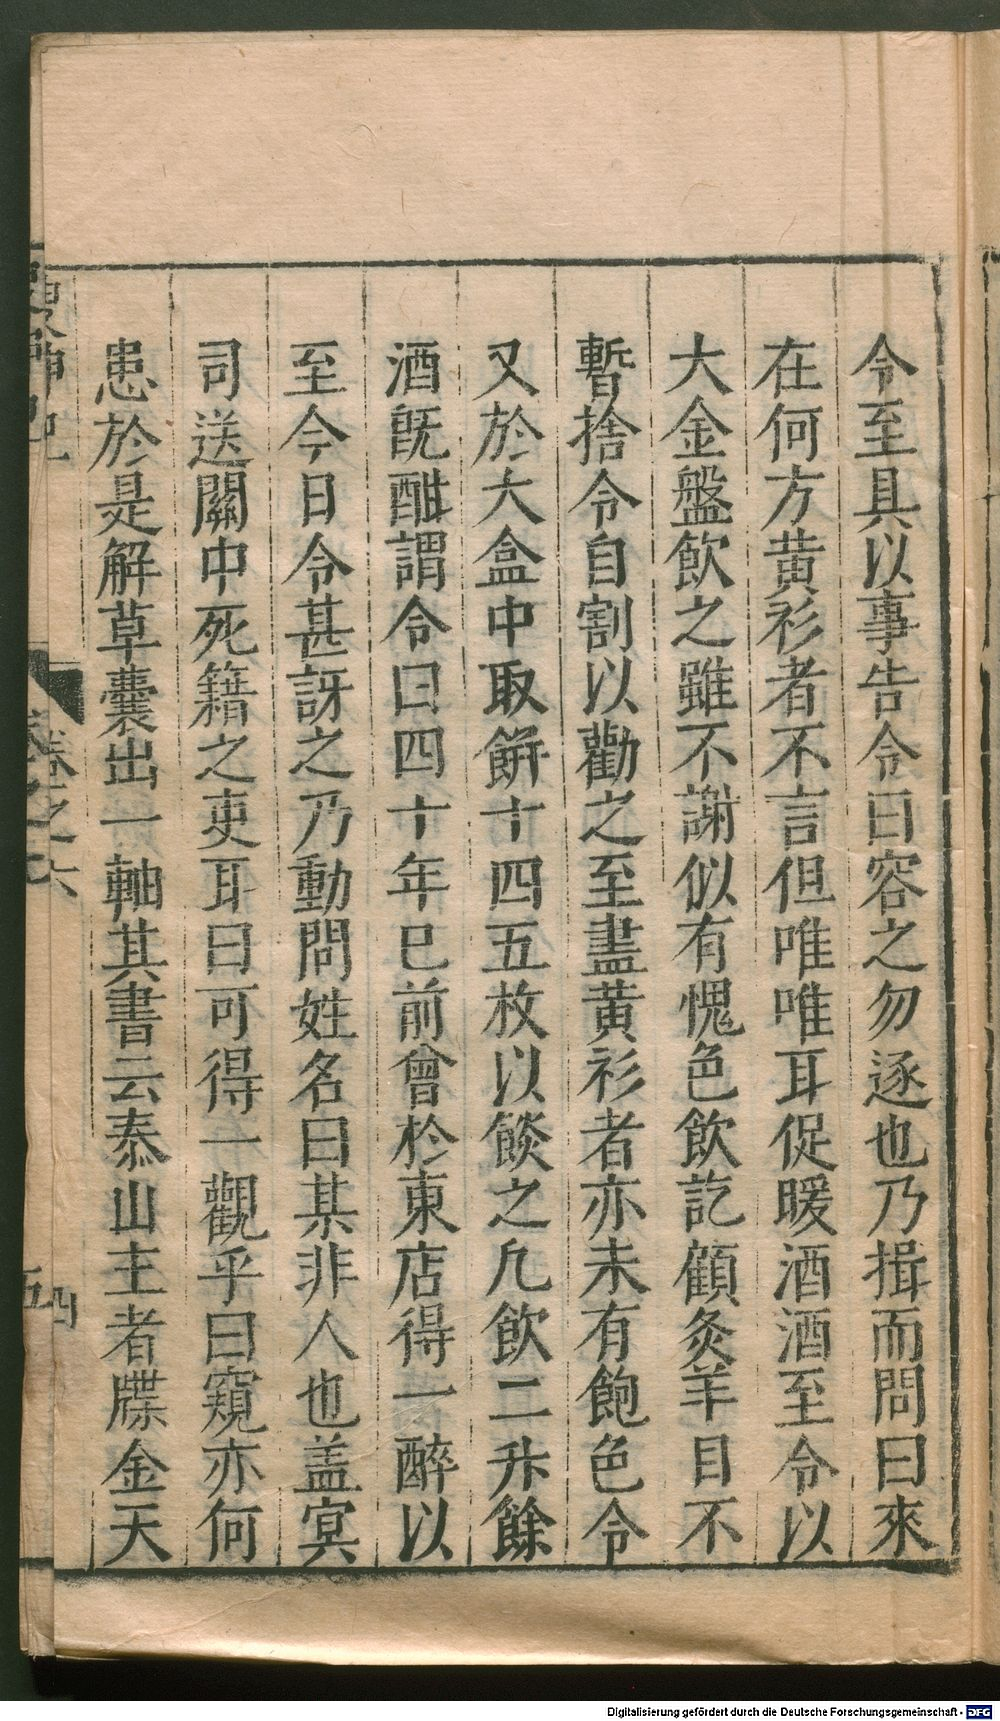 令至具以事告令曰容之勿逐也乃揖而問曰來
在何方黃衫者不言但唯唯耳促暖酒酒至令以
大金盤飲之雖不謝似有愧色飲訖顧炙羊目不
暫捨令自割以勸之至盡黃衫者亦未有飽色令
又於大盒中取餅十四五枚以餤之凢飲二升餘
酒旣酣謂令曰四十年巳前曾於東店得一醉以
至今日令甚訝之乃動問姓名曰某非人也盖冥
司送關中死籍之吏耳曰可得一觀乎曰窺亦何
患於是解草囊出一軸其書云泰山主者牒金天
卷之六
四
五
Digitalisierung gefördert durch die Deutsche Forschungsgemeinschaft - DFG